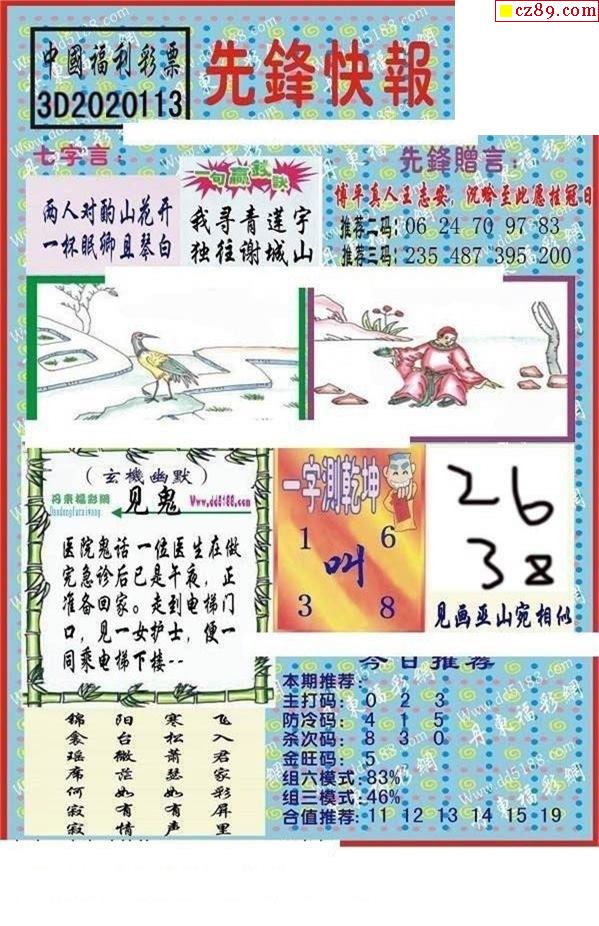 cz89.com
中國福利彩票
3D2020113
先鋒快報
七字言：
两人对酌山花开
一杯眠卿且琴白
一句赢錢訣
我寻青莲宇
独往谢城山
先鋒贈言：
博平真人王志安，沉吟至此愿挂冠日
推荐二码：06 24 70 97 83
推荐三码：235 487 395 200
（玄機幽默）
丹東福彩網
Dandongfucaiwang
见鬼
Www.dd5188.com
医院鬼话 一位医生在做
完急诊后已是午夜，正
准备回家。走到电梯门
口，见一女护士，便一
同乘电梯下楼--
一字測乾坤
1 6
叫
3 8
26
38
见画亚山宛相似
今日推荐
本期推荐：
主打码： 0 2 3
防冷码： 4 1 5
杀次码： 8 3 0
金旺码： 5
组六模式：83%
组三模式：46%
合值推荐：11 12 13 14 15 19
锦 阳 寒 飞
衾 台 松 入
瑶 微 萧 君
席 茫 瑟 家
何 如 如 彩
寂 有 有 屏
寂 情 声 里